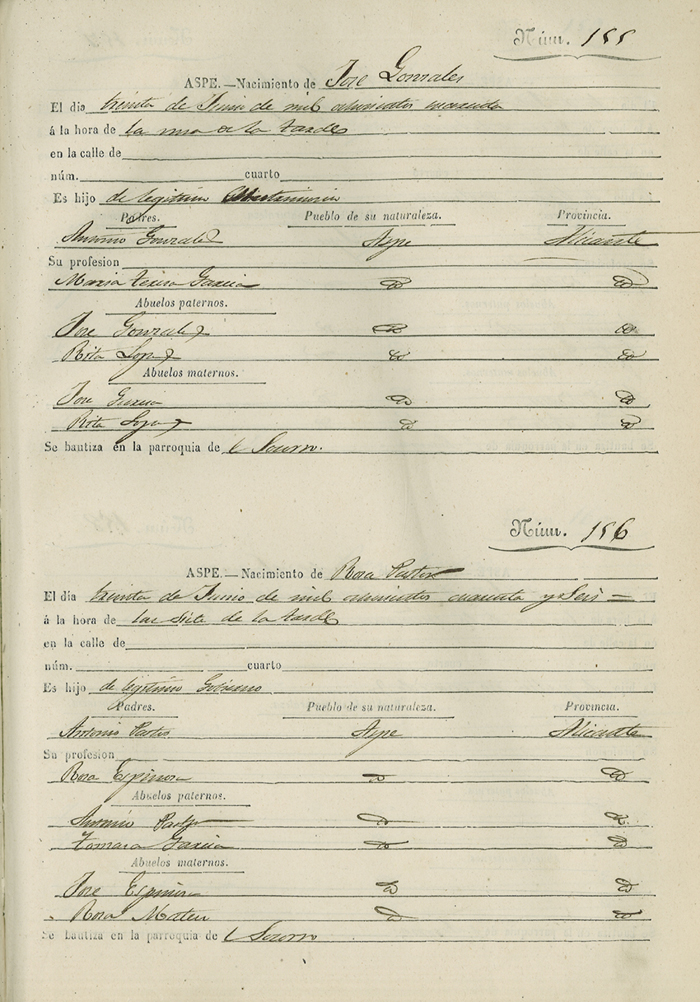 Núm. 155
ASPE.—Nacimiento de Jose Gonzales
El dia treinta de Junio de mil ochocientos cuarenta
á la hora de la una de la tarde
en la calle de
núm. cuarto
Es hijo de legitimo Matrimonio
Padres. Pueblo de su naturaleza. Provincia.
Antonio Gonzalez Aspe Alicante
Su profesion
Maria Teresa Garcia
Abuelos paternos.
Jose Gonzalez
Rita Lopez
Abuelos maternos.
Jose Garcia
Rita Lopez
Se bautiza en la parroquia de el Socorro.
Núm. 156
ASPE.—Nacimiento de Rosa Pastor
El día treinta de Junio de mil ochocientos cuarenta y Seis
á la hora de las siete de la tarde
en la calle de
núm. cuarto
Es hijo de legitimo
Padres. Pueblo de su naturaleza. Provincia.
Antonio Pastor Aspe Alicante
Su profesion
Rosa Espinosa
Abuelos paternos.
Antonio Pastor
Tomasa Garcia
Abuelos maternos.
Jose Espinosa
Rosa Mateu
Se bautiza en la parroquia de el Socorro